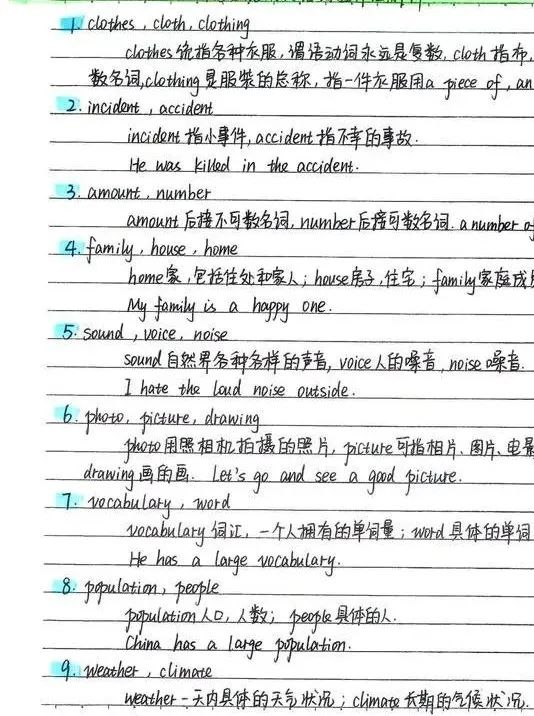 1. clothes, cloth, clothing
clothes 统指各种衣服,谓语动词永远是复数, cloth 指布,
数名词, clothing 是服装的总称,指一件衣服用 a piece of, an
2. incident, accident
incident 指小事件, accident 指不幸的事故.
He was killed in the accident.
3. amount, number
amount 后接不可数名词, number 后接可数名词. a number of
4. family, house, home
home 家,包括住处和家人; house 房子,住宅; family 家庭成
My family is a happy one.
5. sound, voice, noise
sound 自然界各种各样的声音, voice 人的嗓音, noise 噪音.
I hate the loud noise outside.
6. photo, picture, drawing
photo 用照相机拍摄的照片, picture 可指相片、图片、电影
drawing 画的画. Let's go and see a good picture.
7. vocabulary, word
vocabulary 词汇,一个人拥有的单词量; word 具体的单词
He has a large vocabulary.
8. population, people
population 人口,人数; people 具体的人.
China has a large population.
9. weather, climate
weather 一天内具体的天气状况; climate 长期的气候状况.